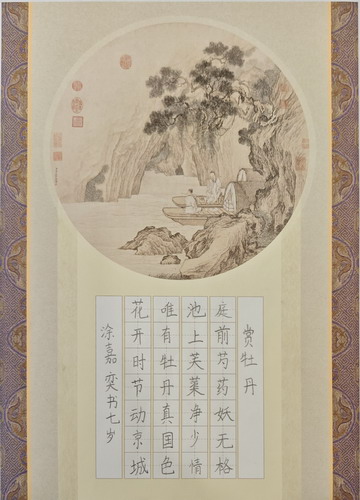 赏牡丹
庭前芍药妖无格
池上芙蕖净少情
唯有牡丹真国色
花开时节动京城
涂嘉奕书七岁